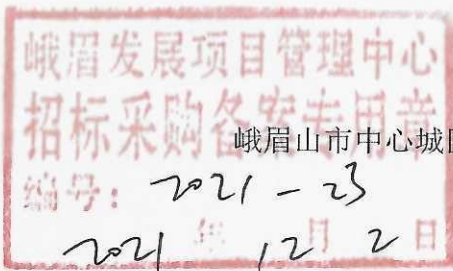 峨眉发展项目管理中心
招标采购备案专用章
峨眉山市中心城
编号：2021-23
2021年12月2日